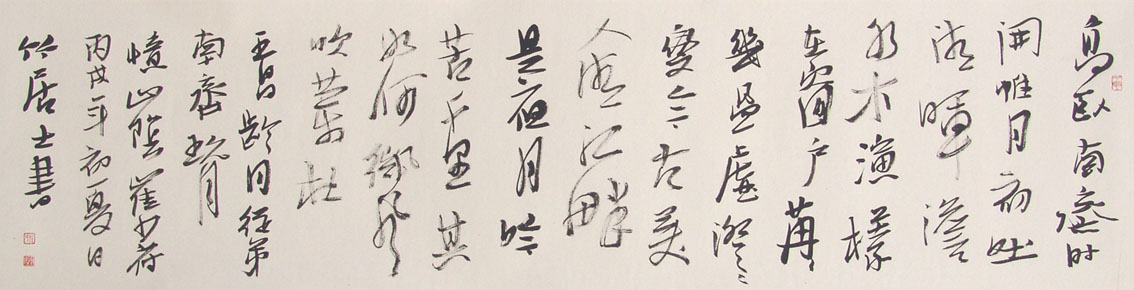 高臥南齋时
開帷月初吐
清暉澹
水木演漾
在窗户苒〻
幾盈虚澄〻
變今古美
人清江畔
是夜月吟
苦千里其
如何微風
吹蘭杜
王昌齡同從弟
南齋翫月
憶山陰崔少府
丙戌年初夏日
竹居士書